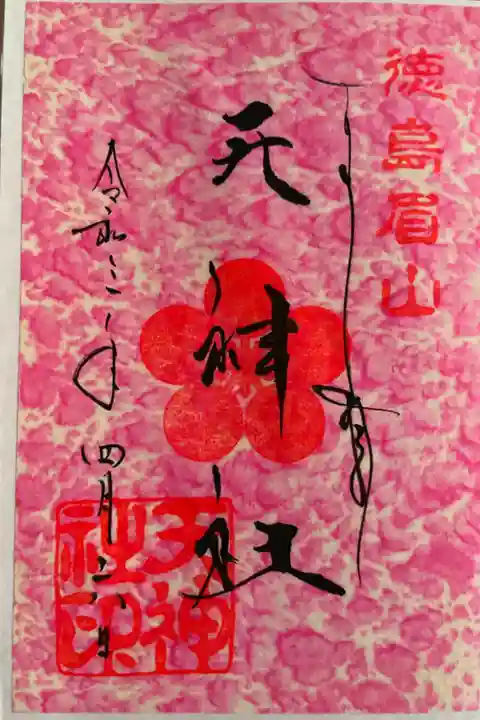 徳島眉山
天神社
令和三年 四月二八日
天神
社印